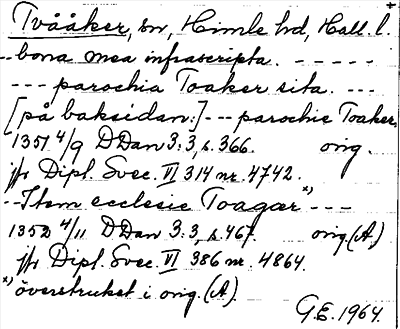 Tvååker, sn, Himle hd, Hall. l. +
-- bona mea infrascripta. - - - - -
--- parochia Toaker sita. ---
[på baksidan:] --- parochie Toaker.
1351 4/9 D Dan 3:3, s. 366. orig.
jfr Dipl. Svec. VI 314 nr. 4742.
-- Item ecclesie Toagær x) ---
1352 4/11 D Dan 3:3, s. 467. orig. (A.)
jfr Dipl. Svec. VI 386 nr. 4864.
x) överstruket i orig. (A).
G.E. 1964.